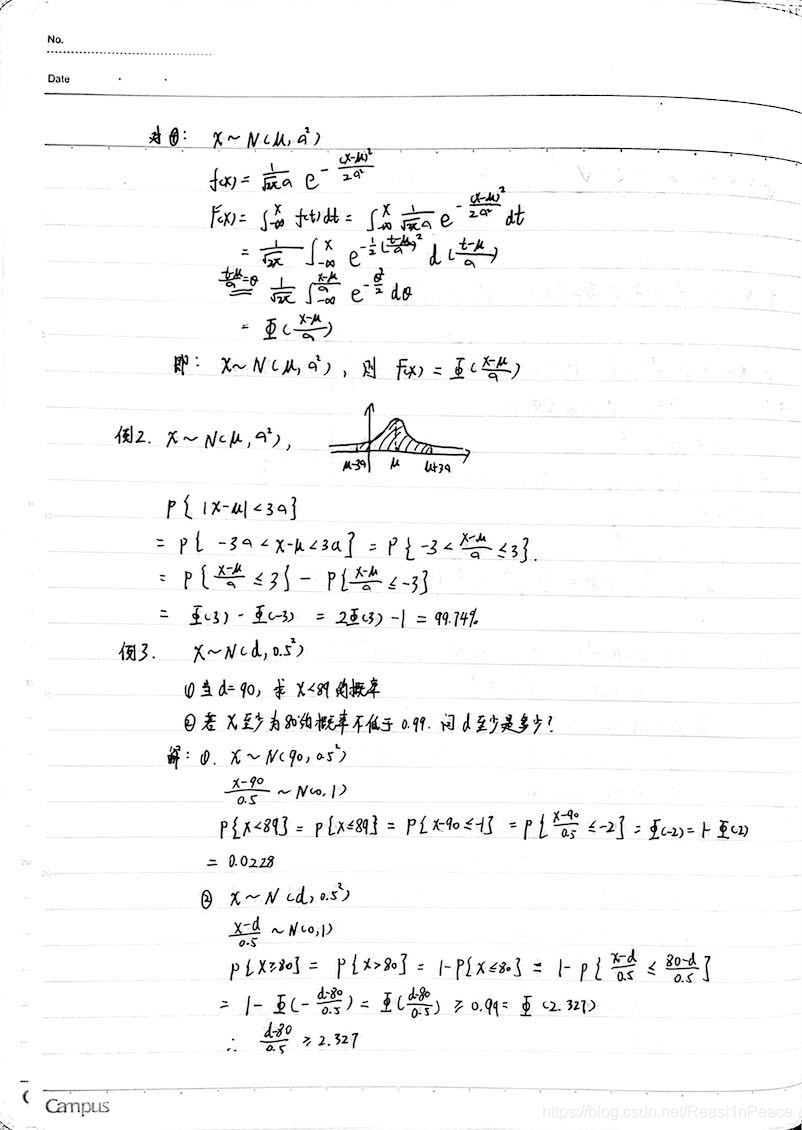 No.
Date
对①: X~N(μ, a²)
f(x) = \frac{1}{\sqrt{2π}a} e^{-\frac{(x-μ)²}{2a²}}
F(x) = ∫_{-∞}^{x} f(t)dt = ∫_{-∞}^{x} \frac{1}{\sqrt{2π}a} e^{-\frac{(x-μ)²}{2a²}} dt
= \frac{1}{\sqrt{2π}} ∫_{-∞}^{x} e^{-\frac{1}{2}(\frac{t-μ}{a})²} d(\frac{t-μ}{a})
\frac{t-μ}{a}=θ \frac{1}{\sqrt{2π}} ∫_{-∞}^{\frac{x-μ}{a}} e^{-\frac{θ²}{2}} dθ
= Φ(\frac{x-μ}{a})
即: X~N(μ, a²), 则 F(x) = Φ(\frac{x-μ}{a})
例2. X~N(μ, a²),
μ-3a μ μ+3a
P{|X-μ|<3a}
= P{-3a<X-μ<3a} = P{-3<\frac{X-μ}{a}≤3}.
= P{\frac{X-μ}{a}≤3} - P{\frac{X-μ}{a}≤-3}
= Φ(3) - Φ(-3) = 2Φ(3) - 1 = 99.74%
例3. X~N(d, 0.5²)
① 当d=90, 求 X<89 的概率
② 若 X至少为80的概率不低于0.99. 问d至少是多少?
解: ①. X~N(90, 0.5²)
\frac{X-90}{0.5} ~ N(0,1)
P{X<89} = P{X≤89} = P{X-90≤-1} = P{\frac{X-90}{0.5}≤-2} = Φ(-2) = 1-Φ(2)
= 0.0228
② X~N(d, 0.5²)
\frac{X-d}{0.5} ~ N(0,1)
P{X≥80} = P{X>80} = 1-P{X≤80} = 1-P{\frac{X-d}{0.5} ≤ \frac{80-d}{0.5}}
= 1-Φ(-\frac{d-80}{0.5}) = Φ(\frac{d-80}{0.5}) ≥ 0.99 = Φ(2.327)
∴ \frac{d-80}{0.5} ≥ 2.327
Campus
https://blog.csdn.net/Reast1nPeace